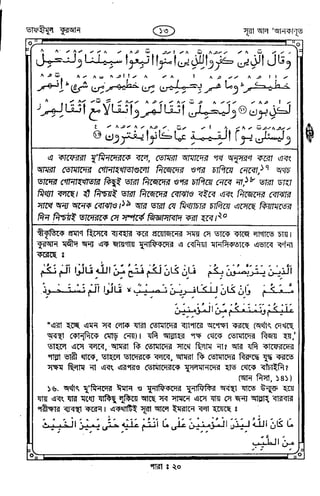 তাফহীমুল কুরআন
১৩
সূরা আল 'আনকাবূত
وَقَالَ الَّذِينَ كَفَرُوا لِلَّذِينَ آمَنُوا اتَّبِعُوا سَبِيلَنَا وَلْنَحْمِلْ
خَطٰيٰكُمْ ۚ وَمَا هُمْ بِحٰمِلِينَ مِنْ خَطٰيٰهُمْ مِّنْ شَىْءٍ ۖ اِنَّهُمْ
لَكٰذِبُونَ ⑫ وَلَيَحْمِلُنَّ اَثْقَالَهُمْ وَاَثْقَالًا مَّعَ اَثْقَالِهِمْ ۖ
وَلَيُسْـَٔلُنَّ يَوْمَ الْقِيٰمَةِ عَمَّا كَانُوا يَفْتَرُونَ ⑬
এ কাফেররা মু'মিনদেরকে বলে, তোমরা আমাদের পথ অনুসরণ করো এবং
আমরা তোমাদের গোনাহখাতাগুলো নিজেদের ওপর চাপিয়ে নেবো,১৭ অথচ
তাদের গোনাহখাতার কিছুই তারা নিজেদের ওপর চাপিয়ে নেবে না,১৮ তারা ডাহা
মিথ্যা বলছে। হাঁ নিশ্চয়ই তারা নিজেদের বোঝাও বইবে এবং নিজেদের বোঝার
সাথে অন্য অনেক বোঝাও।১৯ আর তারা যে মিথ্যাচার চালিয়ে এসেছে কিয়ামতের
দিন নিশ্চয়ই তাদেরকে সে সম্পর্কে জিজ্ঞাসাবাদ করা হবে।২০
স্বীকৃতিকে প্রমাণ হিসেবে ব্যবহার করে প্রয়োজনের সময় সে তাকে কাজে লাগাতে চায়।
কুরআন মজীদ অন্য এক জায়গায় মুনাফিকদের এ বেনিয়া মানসিকতাকে এভাবে বর্ণনা
করেছে :
الَّذِينَ يَتَرَبَّصُونَ بِكُمْ ۚ فَإِنْ كَانَ لَكُمْ فَتْحٌ مِّنَ اللَّهِ قَالُوا أَلَمْ نَكُنْ
مَّعَكُمْ ۖ وَإِنْ كَانَ لِلْكَافِرِينَ نَصِيبٌ ۙ قَالُوا أَلَمْ نَسْتَحْوِذْ
عَلَيْكُمْ وَنَمْنَعْكُمْ مِّنَ الْمُؤْمِنِينَ
"এরা হচ্ছে এমন সব লোক যারা তোমাদের ব্যাপারে অপেক্ষা করছে (অর্থাৎ দেখছে,
অবস্থা কোনদিকে মোড় নেয়)। যদি আল্লাহর পক্ষ থেকে তোমাদের বিজয় হয়,
তাহলে এসে বলবে, আমরা কি তোমাদের সাথে ছিলাম না? আর যদি কাফেরদের
পাল্লা ভারী থাকে, তাহলে তাদেরকে বলবে, আমরা কি তোমাদের বিরুদ্ধে যুদ্ধ করতে
সক্ষম ছিলাম না এবং এরপরও তোমাদেরকে মুসলমানদের হাত থেকে বাঁচাইনি?"
(আন নিসা, ১৪১)
১৬. অর্থাৎ মু'মিনদের ঈমান ও মুনাফিকদের মুনাফিকির অবস্থা যাতে উন্মুক্ত হয়ে
যায় এবং যার মধ্যে যাকিছু লুকিয়ে আছে সব সামনে এসে যায় সে জন্য আল্লাহ বারবার
পরীক্ষার ব্যবস্থা করেন। একথাটিই সূরা আলে ইমরানে বলা হয়েছে :
مَا كَانَ اللَّهُ لِيَذَرَ الْمُؤْمِنِينَ عَلَىٰ مَا أَنْتُمْ عَلَيْهِ حَتَّىٰ يَمِيزَ الْخَبِيثَ
مِنَ الطَّيِّبِ
পারা : ২০